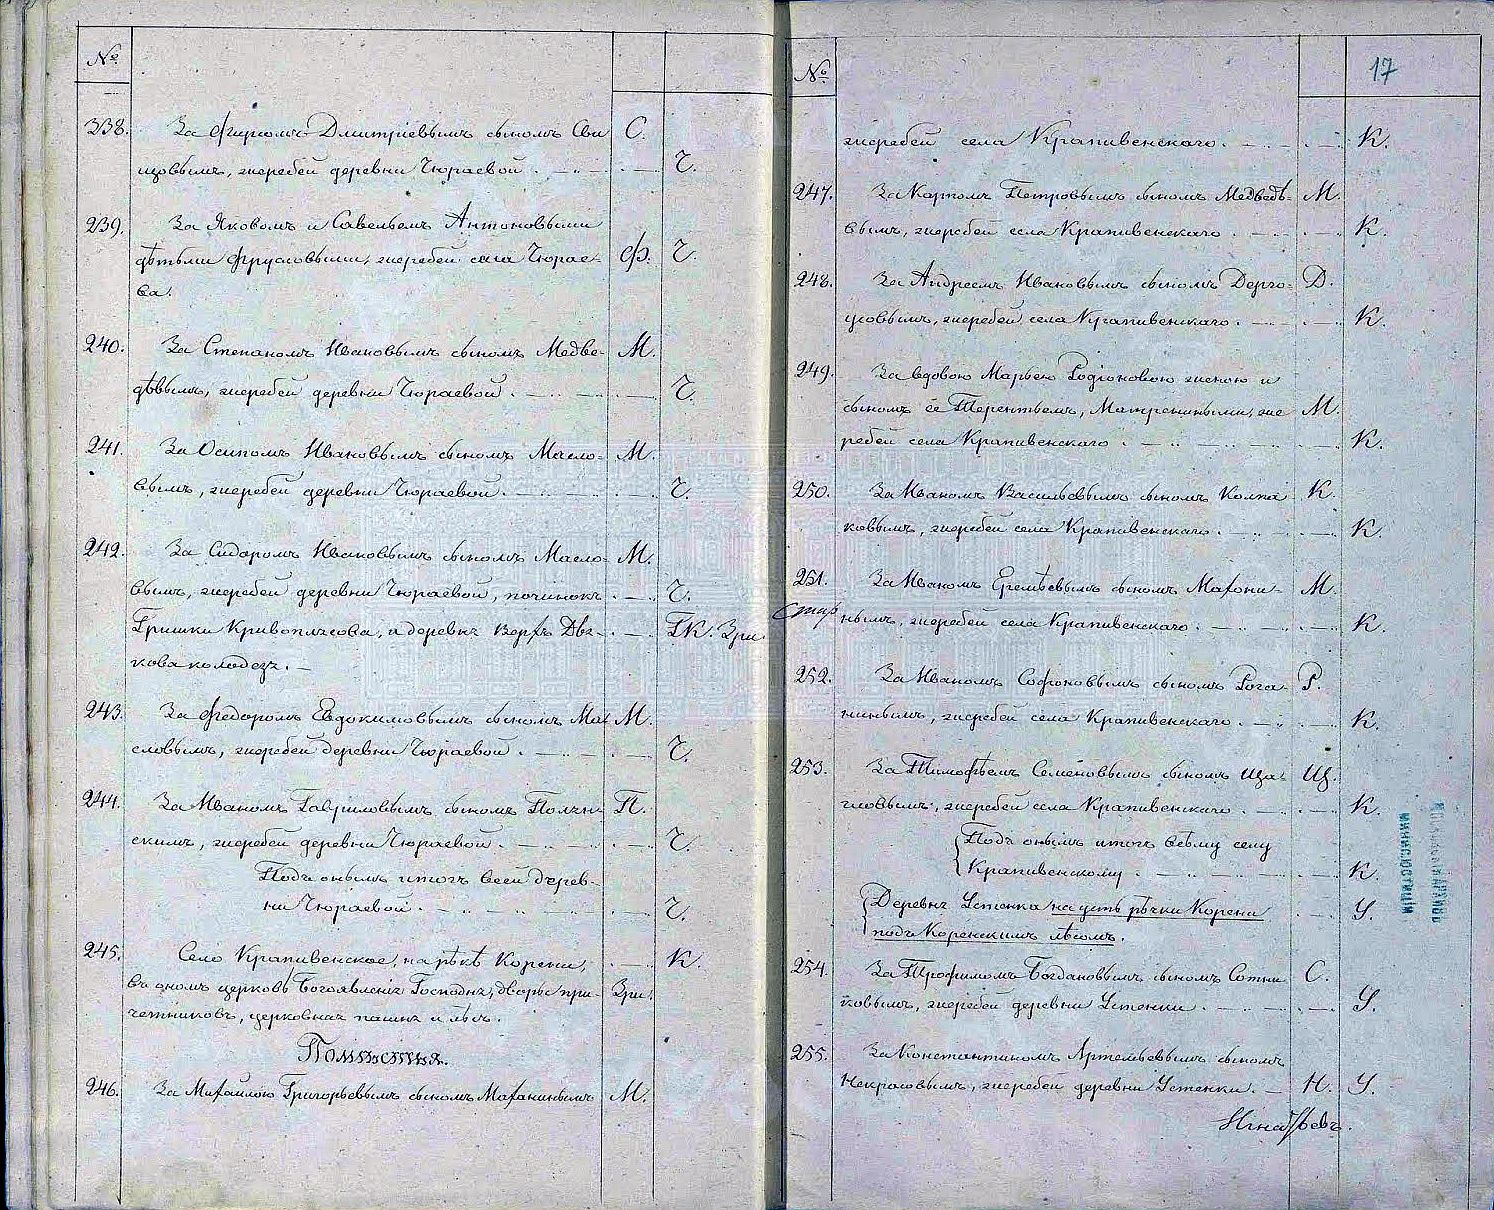 №
338. За Фирсомъ Дмитріевымъ сыномъ Сви С.
щовымъ, жеребей деревни Чюраевой. Ч.
239. За Яковомъ и Савельемъ Антоновыми
дѣтьми Фрусловыми, жеребей села Чюрае- Ф. Ч.
ва.
240. За Степаномъ Ивановымъ сыномъ Медве- М.
дѣвымъ, жеребей деревни Чюраевой. Ч.
241. За Осипомъ Ивановымъ сыномъ Масло- М.
вымъ, жеребей деревни Чюраевой. Ч.
242. За Сидоромъ Ивановымъ сыномъ Масло- М.
вымъ, жеребей деревни Чюраевой, починокъ Ч.
Гришки Кривоплясова, а деревня Верхъ Дья- ГК. Зри
кова колодезя. Стар
243. За Федоромъ Евдокимовымъ сыномъ Ма М.
словымъ, жеребей деревни Чюраевой. Ч.
244. За Иваномъ Гавриловымъ сыномъ Полян- П.
скимъ, жеребей деревни Чюраевой. Ч.
Подъ онымъ итогъ всей дерев-
ни Чюраевой. Ч.
245. Село Крапивенское, на рѣкѣ Корени, К.
въ ономъ церковь Богоявленія Господня, дворы при- Зри.
четниковъ, церковная пашня и лѣсъ.
Помѣстья.
246. За Михайлою Григорьевымъ сыномъ Маханинымъ М.
№ 17
жеребей села Крапивенскаго. К.
247. За Карпомъ Петровымъ сыномъ Медведѣ- М.
вымъ, жеребей села Крапивенскаго К.
248. За Андреемъ Ивановымъ сыномъ Дерго- Д.
усовымъ, жеребей села Крапивенскаго. К.
249. За вдовою Марьею Родіоновою женою и
сыномъ ее Терентьемъ, Матрениными, же М.
ребей села Крапивенскаго. К.
250. За Иваномъ Васильевымъ сыномъ Колпа К.
ковымъ, жеребей села Крапивенскаго. К.
251. За Иваномъ Еремѣевымъ сыномъ Махони- М.
нымъ, жеребей села Крапивенскаго. К.
252. За Иваномъ Софоновымъ сыномъ Рога- Р.
нинымъ, жеребей села Крапивенскаго. К.
253. За Тимофѣемъ Семеновымъ сыномъ Ща- Щ.
гловымъ, жеребей села Крапивенскаго К.
Подъ онымъ итогъ всѣму селу
Крапивенскому. К.
Деревня Устенка на усть рѣчки Корени У.
подъ Коренскимъ лѣсомъ.
254. За Трофимомъ Богдановымъ сыномъ Сотни С.
ковымъ, жеребей деревни Устенки У.
255. За Константиномъ Артемьевымъ сыномъ
Некрасовымъ, жеребей деревни Устенки. Н. У.
МИНИС. ЮСТИЦІИ